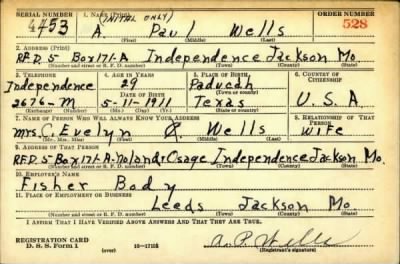 SERIAL NUMBER 1. NAME (Print) ORDER NUMBER
4453 (INITIAL ONLY) A. Paul Wells 528
(First) (Middle) (Last)
2. ADDRESS (Print)
R.F.D. 5 Box 171-A Independence Jackson Mo.
(Number and street or R. F. D. number) (Town) (County) (State)
3. TELEPHONE 4. AGE IN YEARS 5. PLACE OF BIRTH 6. COUNTRY OF CITIZENSHIP
Independence 29 Paducah
DATE OF BIRTH (Town or county)
2676-M 5-11-1911 Texas U.S.A.
(Exchange) (Number) (Mo.) (Day) (Yr.) (State or country)
7. NAME OF PERSON WHO WILL ALWAYS KNOW YOUR ADDRESS 8. RELATIONSHIP OF THAT PERSON
Mrs. C. Evelyn Wells Wife
(Mr., Mrs., Miss) (First) (Middle) (Last)
9. ADDRESS OF THAT PERSON
R.F.D. 5-Box 171-A-Noland & Osage Independence Jackson Mo.
(Number and street or R. F. D. number) (Town) (County) (State)
10. EMPLOYER'S NAME
Fisher Body
11. PLACE OF EMPLOYMENT OR BUSINESS
Leeds Jackson Mo.
(Number and street or R. F. D. number) (Town) (County) (State)
I AFFIRM THAT I HAVE VERIFIED ABOVE ANSWERS AND THAT THEY ARE TRUE.
REGISTRATION CARD
D. S. S. Form 1 (over) 16-17105 A. P. Wells
(Registrant's signature)